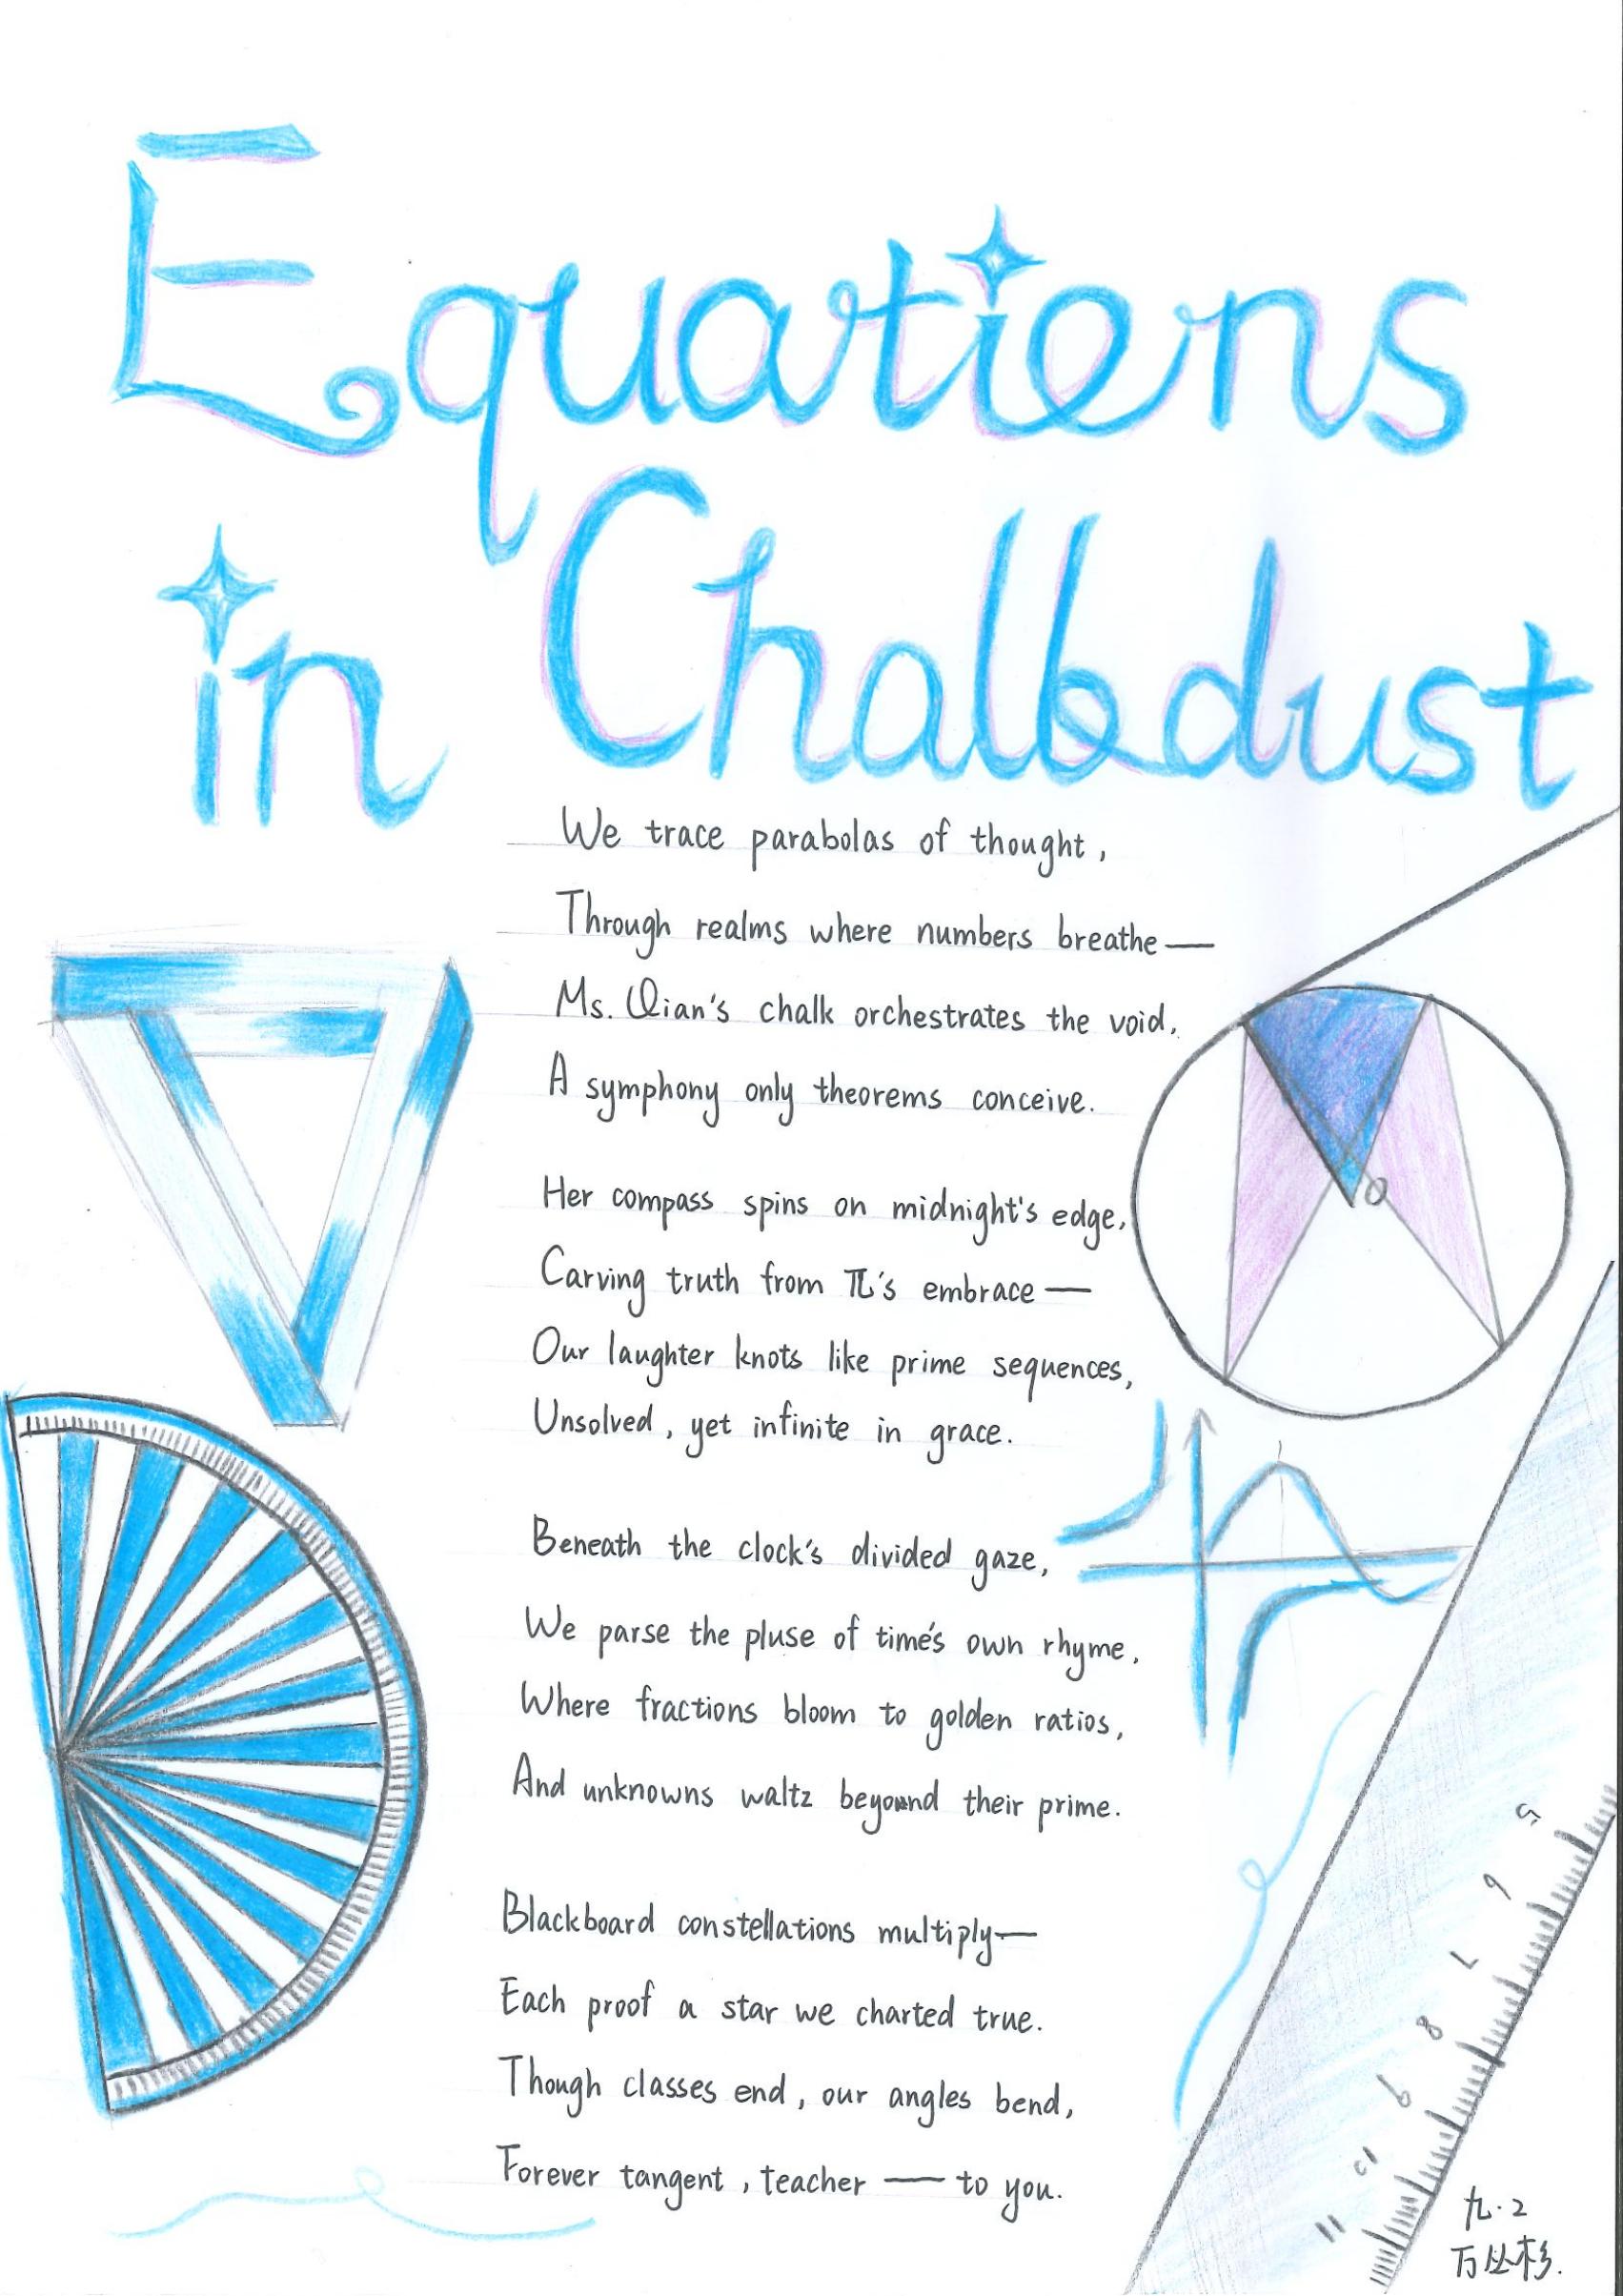 Equations
in Chalkdust
We trace parabolas of thought,
Through realms where numbers breathe—
Ms. Qian's chalk orchestrates the void,
A symphony only theorems conceive.
Her compass spins on midnight's edge,
Carving truth from π's embrace—
Our laughter knots like prime sequences,
Unsolved, yet infinite in grace.
Beneath the clock's divided gaze,
We parse the pluse of time's own rhyme,
Where fractions bloom to golden ratios,
And unknowns waltz beyound their prime.
Blackboard constellations multiply—
Each proof a star we charted true.
Though classes end, our angles bend,
Forever tangent, teacher — to you.
O
5
6
7
8
9
10
11
九.2
万丛杉.